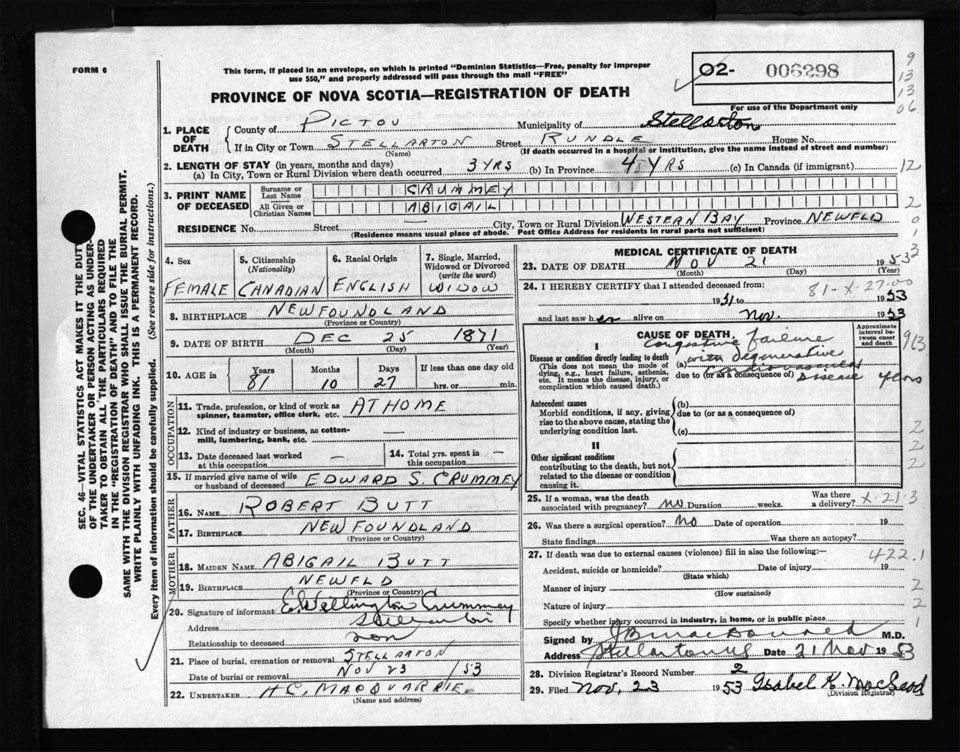 FORM 6
This form, if placed in an envelope, on which is printed "Dominion Statistics—Free, penalty for improper
use $50," and properly addressed will pass through the mail "FREE"
O2- 006298
For use of the Department only
9
13
13
06
PROVINCE OF NOVA SCOTIA—REGISTRATION OF DEATH
1. PLACE OF DEATH { County of PICTOU Municipality of Stellarton
If in City or Town STELLARTON Street RUNDLE House No.
(Name) (If death occurred in a hospital or institution, give the name instead of street and number)
2. LENGTH OF STAY (in years, months and days)
(a) In City, Town or Rural Division where death occurred 3 YRS (b) In Province YRS (c) In Canada (if immigrant) 12
3. PRINT NAME OF DECEASED { Surname or Last Name CRUMMEY
All Given or Christian Names ABIGAIL 2
RESIDENCE No. Street City, Town or Rural Division WESTERN BAY Province NEWFLD 0
(Residence means usual place of abode. Post Office Address for residents in rural parts not sufficient) 1
4. Sex FEMALE
5. Citizenship (Nationality) CANADIAN
6. Racial Origin ENGLISH
7. Single, Married, Widowed or Divorced (write the word) WIDOW
8. BIRTHPLACE NEWFOUNDLAND
(Province or Country)
9. DATE OF BIRTH DEC 25 1871
(Month) (Day) (Year)
10. AGE in { Years Months Days If less than one day old
81 10 27 hrs. or min.
OCCUPATION
11. Trade, profession, or kind of work as spinner, teamster, office clerk, etc. AT HOME
12. Kind of industry or business, as cotton-mill, lumbering, bank, etc. —
13. Date deceased last worked at this occupation —
14. Total yrs. spent in this occupation —
15. If married give name of wife or husband of deceased EDWARD S. CRUMMEY
FATHER
16. NAME ROBERT BUTT
17. BIRTHPLACE NEWFOUNDLAND
(Province or Country)
MOTHER
18. MAIDEN NAME ABIGAIL BUTT
19. BIRTHPLACE NEWFLD
(Province or Country)
20. Signature of informant E. Wellington Crummey
Address Stellarton
Relationship to deceased son
21. Place of burial, cremation or removal STELLARTON
Date of burial or removal NOV 23 /53
22. UNDERTAKER H.C. MACQUARRIE
(Name and address)
MEDICAL CERTIFICATE OF DEATH
23. DATE OF DEATH NOV 21 1953
(Month) (Day) (Year)
24. I HEREBY CERTIFY that I attended deceased from:
81-X-27-00
1951 to 1953
and last saw her alive on Nov. 1953
CAUSE OF DEATH
Approximate interval between onset and death
I
Disease or condition directly leading to death
(This does not mean the mode of dying, e.g., heart failure, asthenia, etc. It means the disease, injury, or complication which caused death.)
(a) Congestive failure
with Degenerative
due to (or as a consequence of) Cardiovascular
Disease years
Antecedent causes
Morbid conditions, if any, giving rise to the above cause, stating the underlying condition last.
(b)
due to (or as a consequence of)
(c)
II
Other significant conditions
contributing to the death, but not related to the disease or condition causing it.
2
2
2
25. If a woman, was the death associated with pregnancy? no Duration weeks. Was there a delivery? X-21-3
26. Was there a surgical operation? No Date of operation 19
State findings Was there an autopsy?
27. If death was due to external causes (violence) fill in also the following:— 422.1
Accident, suicide or homicide? Date of injury 19
(State which)
Manner of injury 2
(How sustained)
Nature of injury 2
Specify whether injury occurred in industry, in home, or in public place 1
Signed by J B MacDonald M.D.
Address Stellarton NS Date 21 Nov 1953
28. Division Registrar's Record Number 2
29. Filed Nov. 23 1953 Isabel K. MacLeod
(Division Registrar)
SEC. 46—VITAL STATISTICS ACT MAKES IT THE DUTY
OF THE UNDERTAKER OR PERSON ACTING AS UNDER-
TAKER TO OBTAIN ALL THE PARTICULARS REQUIRED
IN THE "REGISTRATION OF DEATH" AND TO FILE THE
SAME WITH THE DIVISION REGISTRAR WHO SHALL ISSUE THE BURIAL PERMIT.
WRITE PLAINLY WITH UNFADING INK. THIS IS A PERMANENT RECORD.
Every item of information should be carefully supplied. (See reverse side for instructions.)